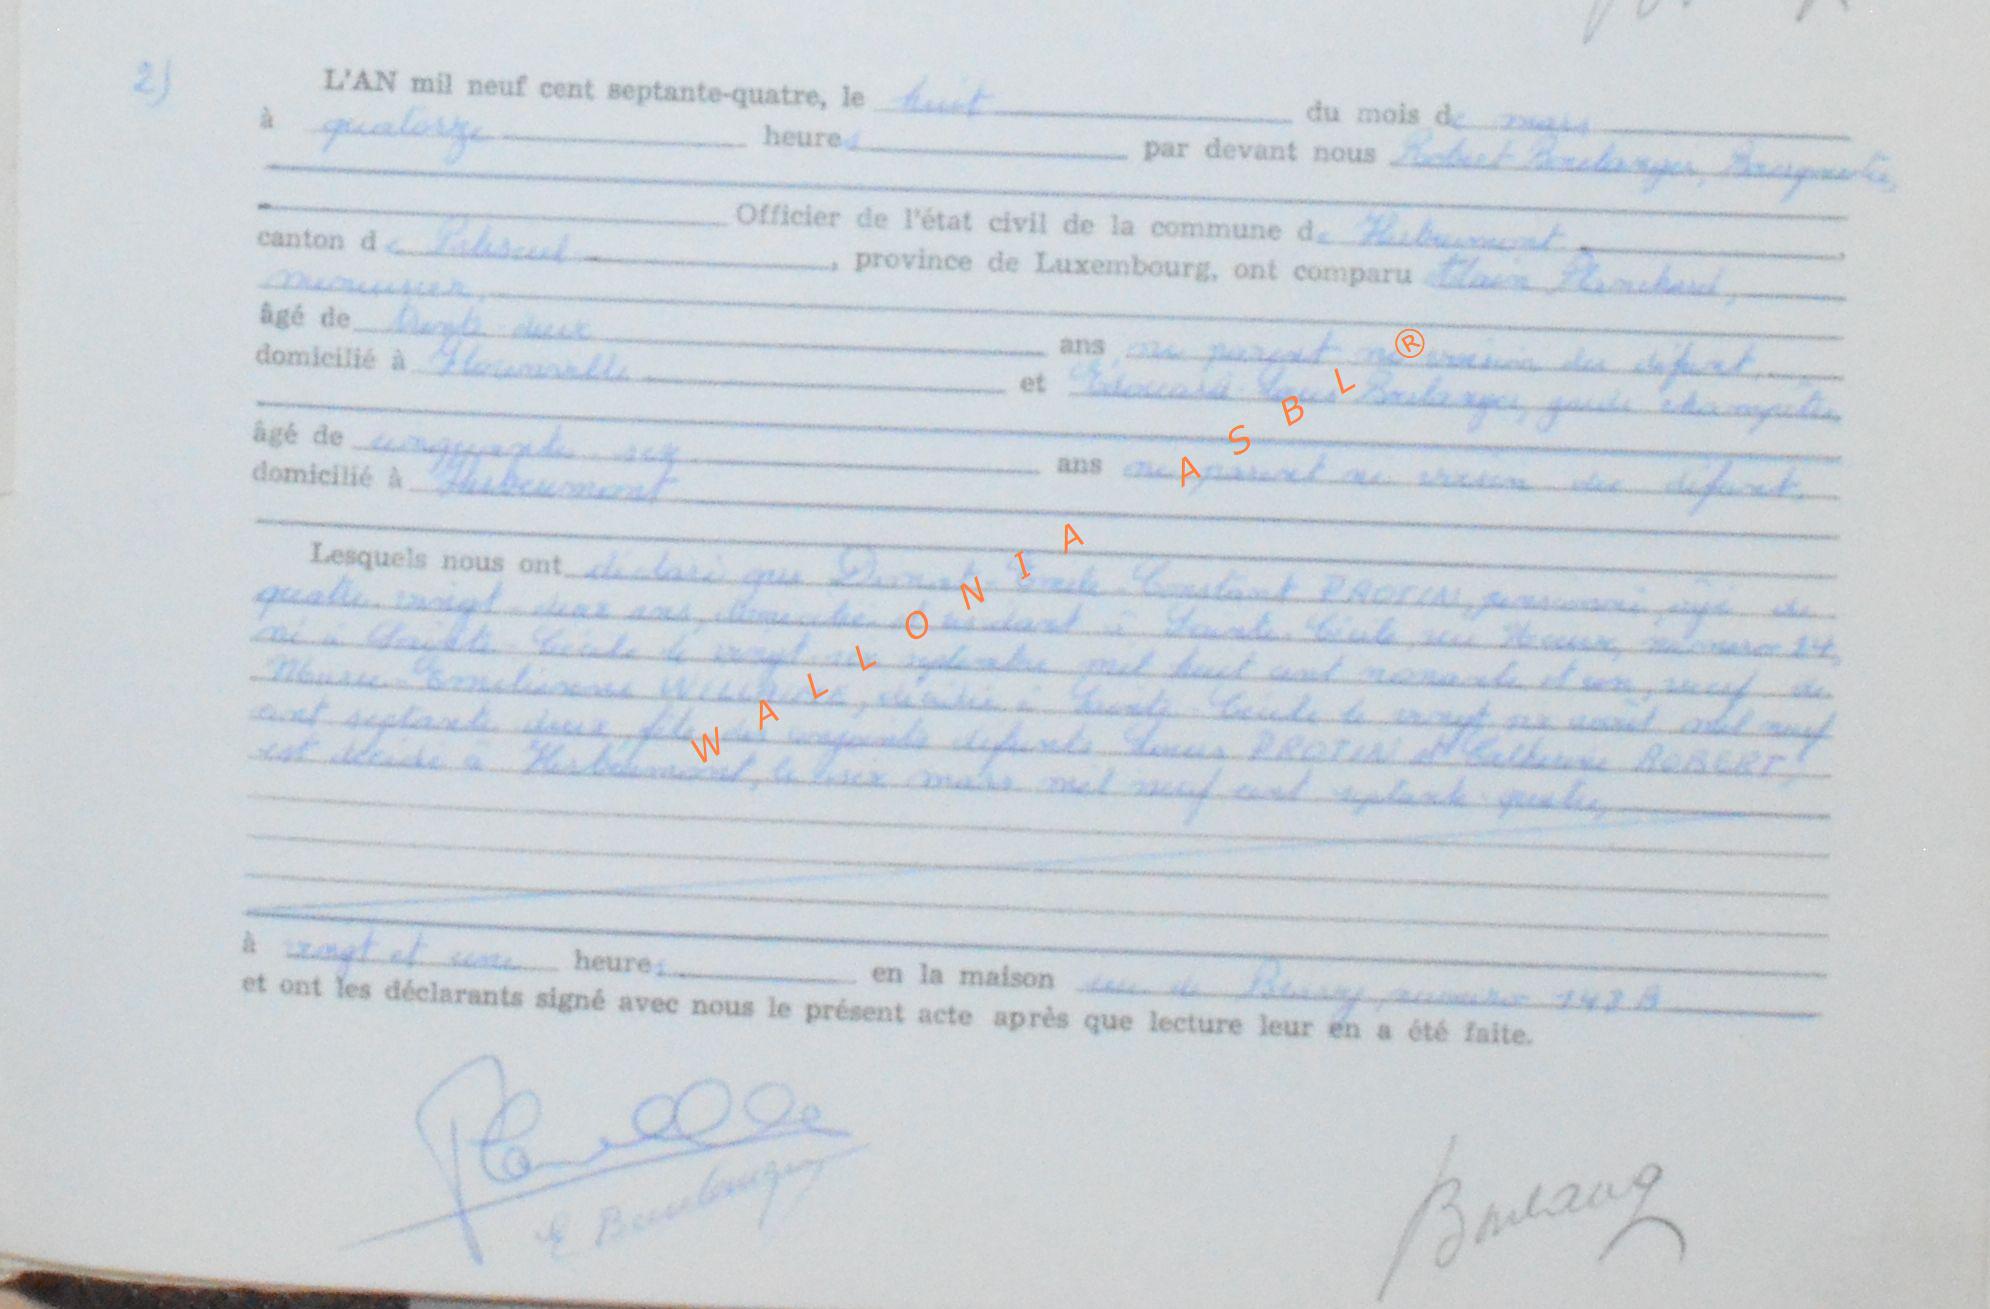 2) L'AN mil neuf cent septante-quatre, le huit du mois de mars
à quatorze heures par devant nous Robert Boulanger, Bourgmestre,
Officier de l'état civil de la commune de Herbeumont
canton de Paliseul, province de Luxembourg, ont comparu Alain Planchard,
menuisier,
âgé de trente-deux ans, ni parent ni voisin du défunt,
domicilié à Florenville et Edouard-Louis Boulanger, garde champêtre,
âgé de cinquante-six ans ni parent ni voisin du défunt,
domicilié à Herbeumont
Lesquels nous ont déclaré que Constant PROTIN, pensionné, âgé de
quatre-vingt-deux ans, domicilié et résidant à Sainte-Cécile, rue numéro 14,
né à Sainte-Cécile le vingt-six septembre mil huit cent nonante et un, veuf de
Marie-Emilienne décédée à Sainte-Cécile le vingt-six août mil neuf
cent septante-deux, fils des conjoints défunts Louis PROTIN et Catherine ROBERT,
est décédé à Herbeumont, le six mars mil neuf cent septante-quatre,
à vingt et une heures en la maison rue de numéro 143 B
et ont les déclarants signé avec nous le présent acte après que lecture leur en a été faite.
E Boulanger
Boulang
WALLONIA ASBL ®